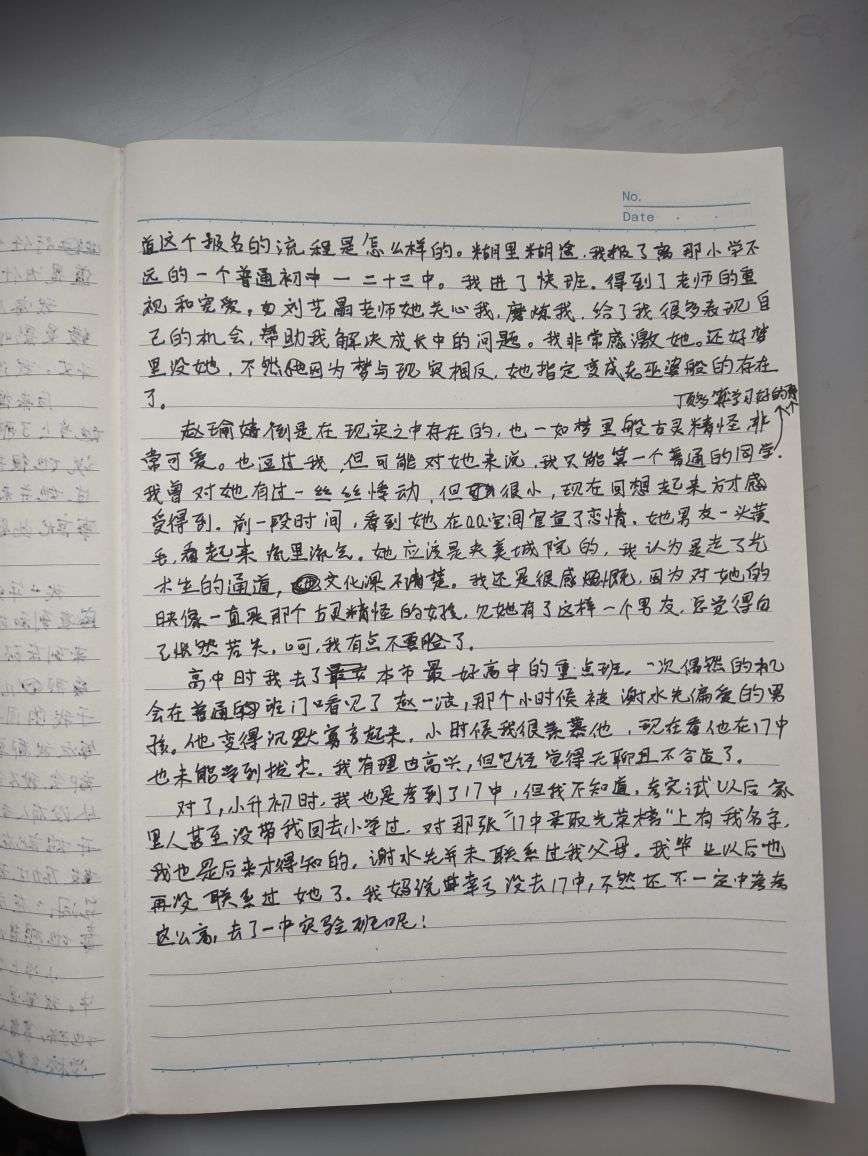 No.
Date
道这个报名的流程是怎么样的。糊里糊涂,我报了离那小学不
远的一个普通初中——二十三中。我进了快班。得到了老师的重
视和宠爱。如刘艺晶老师她关心我,磨炼我,给了我很多表现自
己的机会,帮助我解决成长中的问题。我非常感激她。还好梦
里没她,不然因为梦与现实相反,她指定变成老巫婆般的存在
了。
顶多算学习好的那个
赵瑜婧倒是在现实之中存在的,也一如梦里般古灵精怪,非
常可爱。也逗过我,但可能对她来说,我只能算一个普通的同学.
我曾对她有过一丝丝悸动,但很小,现在回想起来方才感
受得到。前一段时间,看到她在QQ空间官宣了恋情。她男友一头黄
毛,看起来流里流气。她应该是央美城院的,我认为是走了艺
术生的通道,文化课不清楚。我还是很感慨,因为对她的
映像一直是那个古灵精怪的女孩,见她有了这样一个男友,总觉得自
己怅然若失。呵,我有点不要脸了。
高中时我去了本市最好高中的重点班。一次偶然的机
会在普通班门口看见了赵一波,那个小时候被谢水先偏爱的男
孩。他变得沉默寡言起来。小时候我很羡慕他,现在看他在17中
也未能学到拔尖。我有理由高兴,但已经觉得无聊且不合适了。
对了,小升初时,我也是考到了17中,但我不知道,考完试以后家
里人甚至没带我回去小学过。对那张"17中录取光荣榜"上有我名字,
我也是后来才得知的。谢水先并未联系过我父母。我毕业以后也
再没联系过她了。我妈说幸亏没去17中,不然还不一定中考考
这么高,去了一中实验班呢!